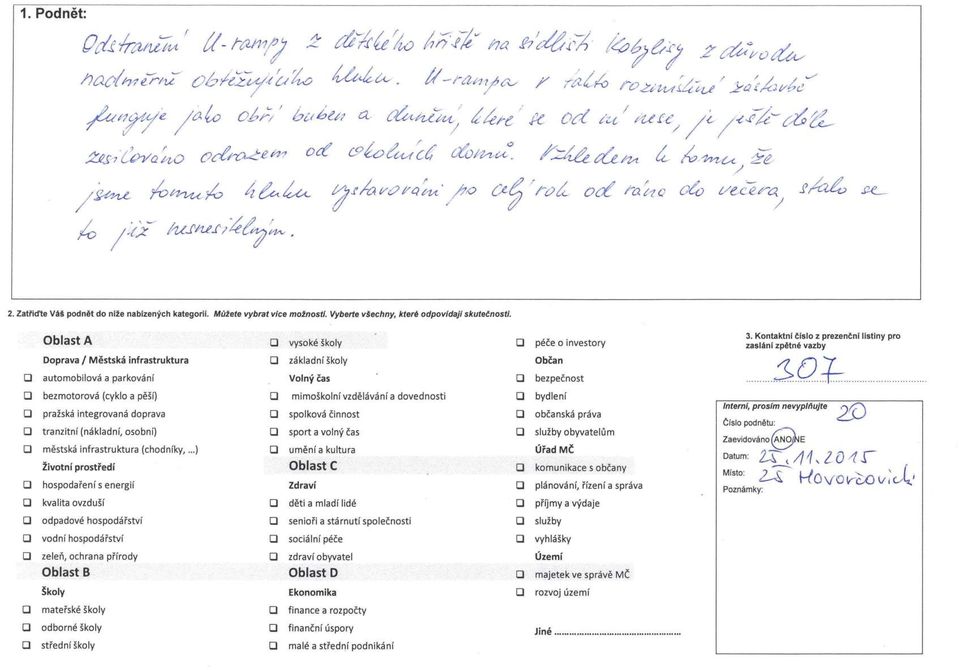 1. Podnět:
Odstranění U-rampy z dětského hřiště na sídlišti Kobylisy z důvodu
nadměrně obtěžujícího hluku. U-rampa v takto rozmístěné zástavbě
funguje jako obří buben a dunění, které se od ní nese, je ještě dále
zesilováno odrazem od okolních domů. Vzhledem k tomu, že
jsme tomuto hluku vystavováni po celý rok od rána do večera, stalo se
to již nesnesitelným.
2. Zatřiďte Váš podnět do níže nabízených kategorií. Můžete vybrat více možností. Vyberte všechny, které odpovídají skutečnosti.
Oblast A
Doprava / Městská infrastruktura
automobilová a parkování
bezmotorová (cyklo a pěší)
pražská integrovaná doprava
tranzitní (nákladní, osobní)
městská infrastruktura (chodníky, ...)
Životní prostředí
hospodaření s energií
kvalita ovzduší
odpadové hospodářství
vodní hospodářství
zeleň, ochrana přírody
Oblast B
Školy
mateřské školy
odborné školy
střední školy
vysoké školy
základní školy
Volný čas
mimoškolní vzdělávání a dovednosti
spolková činnost
sport a volný čas
umění a kultura
Oblast C
Zdraví
děti a mladí lidé
senioři a stárnutí společnosti
sociální péče
zdraví obyvatel
Oblast D
Ekonomika
finance a rozpočty
finanční úspory
malé a střední podnikání
péče o investory
Občan
bezpečnost
bydlení
občanská práva
služby obyvatelům
Úřad MČ
komunikace s občany
plánování, řízení a správa
příjmy a výdaje
služby
vyhlášky
Území
majetek ve správě MČ
rozvoj území
Jiné ..................................................
3. Kontaktní číslo z prezenční listiny pro
zaslání zpětné vazby
307
Interní, prosím nevyplňujte
Číslo podnětu: 20
Zaevidováno ANO/NE
Datum: 25.11.2015
Místo: ZŠ Hovorčovická
Poznámky: